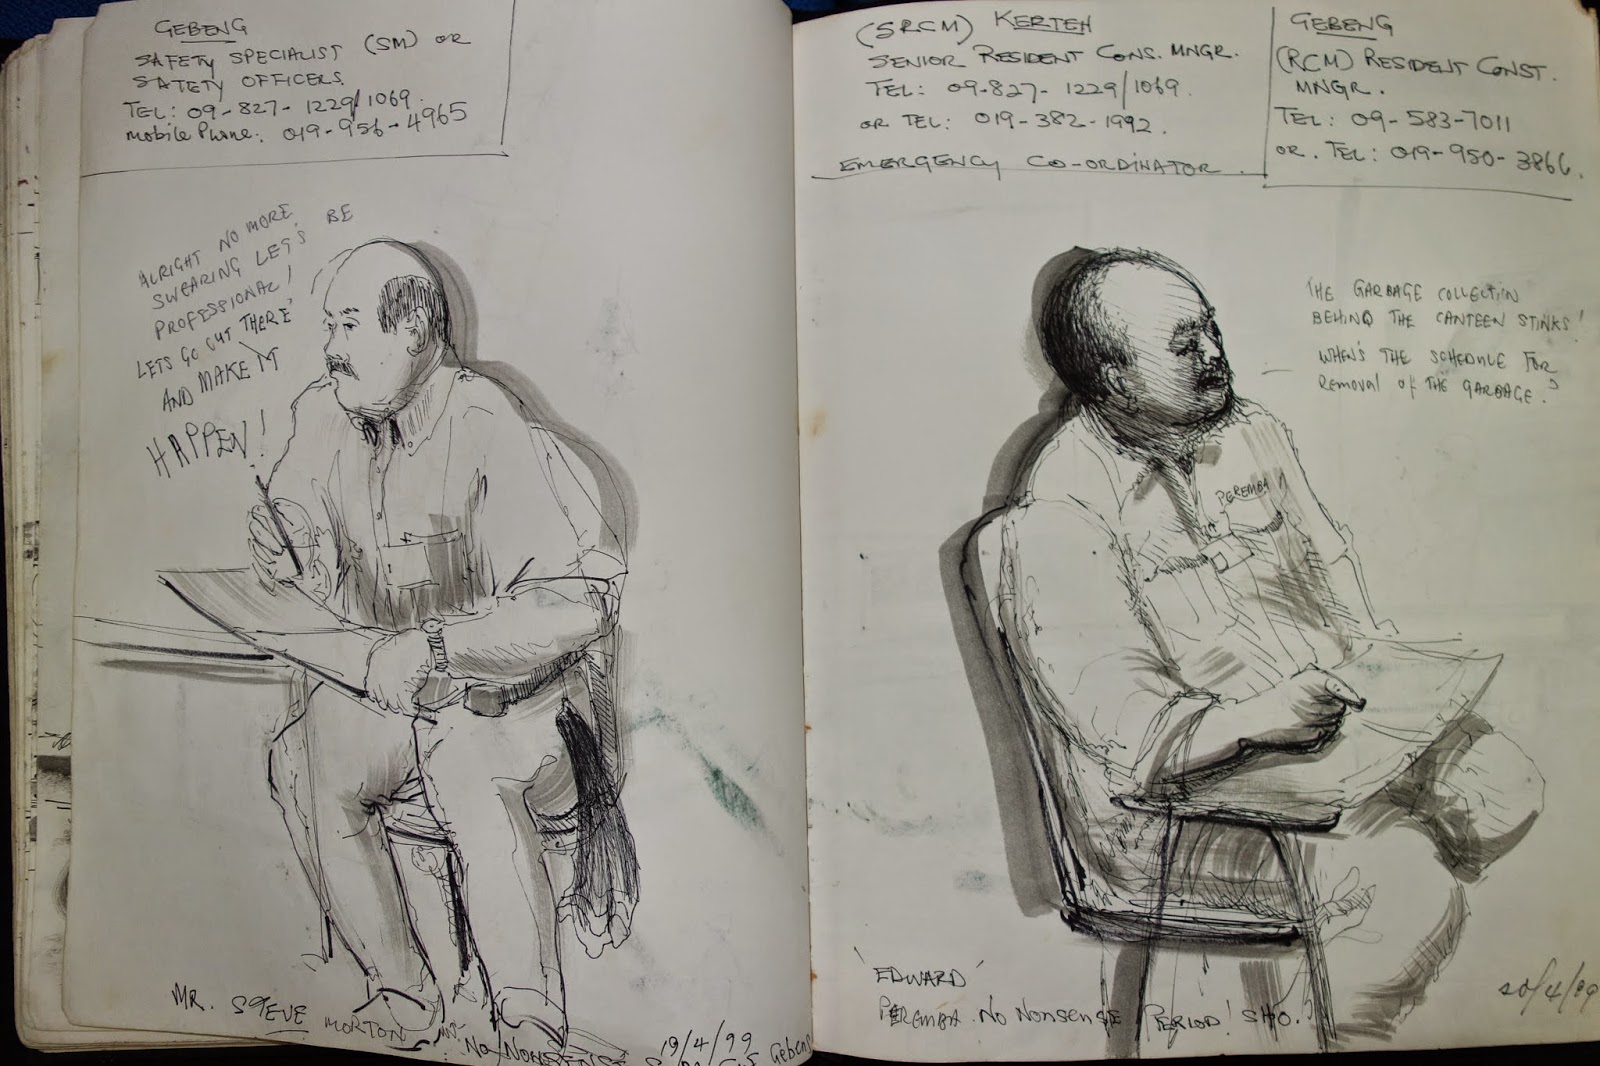 GEBENG
SAFETY SPECIALIST (SM) OR
SATETY OFFICERS.
TEL: 09-827-1229/1069.
mobile Phone: 019-956-4965
ALRIGHT NO MORE
SWEARING LET'S BE
PROFESSIONAL!
LETS GO OUT THERE
AND MAKE IT
HAPPEN!
MR. STEVE MORTON
MR. NO NONSENSE
19/4/99
Gebeng
(SRCM) KERTEH
SENIOR RESIDENT CONS. MNGR.
TEL: 09-827-1229/1069.
OR TEL: 019-382-1992.
EMERGENCY CO-ORDINATOR.
GEBENG
(RCM) RESIDENT CONST.
MNGR.
TEL: 09-583-7011
OR. TEL: 019-950-3866.
THE GARBAGE COLLECTION
BEHIND THE CANTEEN STINKS!
WHEN'S THE SCHEDULE FOR
REMOVAL OF THE GARBAGE?
PEREMBA
'EDWARD'
PEREMBA. NO NONSENSE PERIOD! SHO.
20/4/99